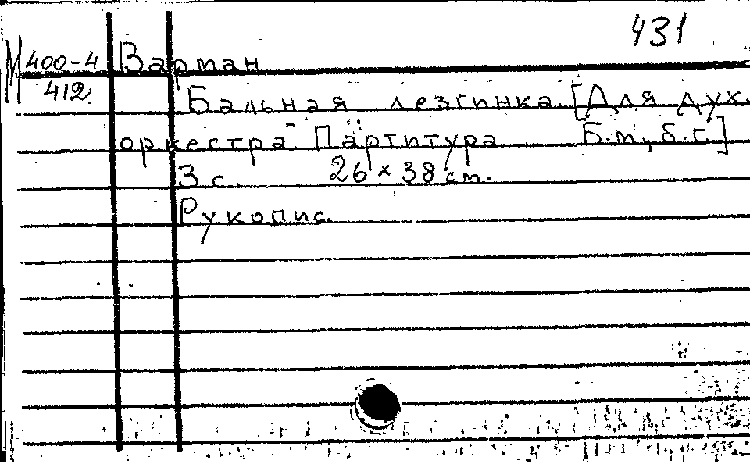 431
М 400-4 Варман
412.
Бальная лезгинка. [Для дух.
оркестра Партитура Б.м., б.г.]
3 с. 26 × 38 см.
Рукопис.